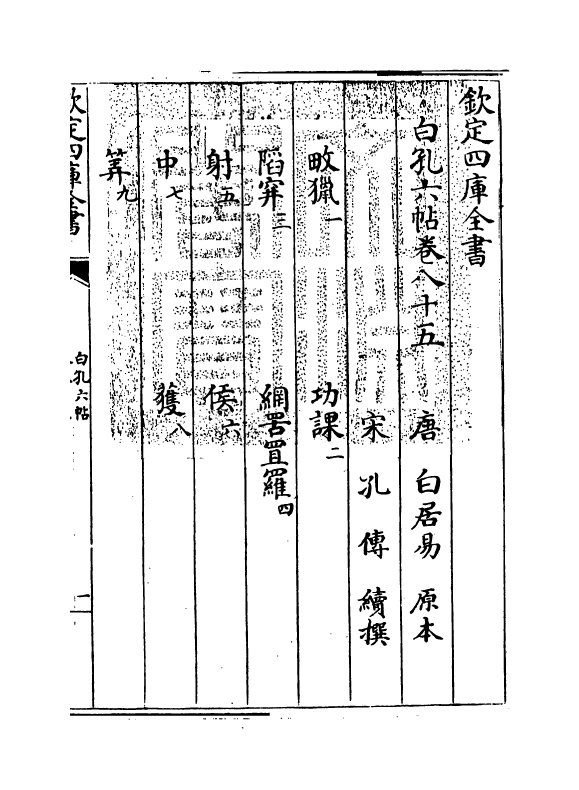 欽定四庫全書
白孔六帖卷八十五
唐 白居易 原本
宋 孔傳 續撰
畋獵一 功課二
陷穽三 網罟罝羅四
射五 侯六
中七 獲八
筭九
欽定四庫全書
白孔六帖
一